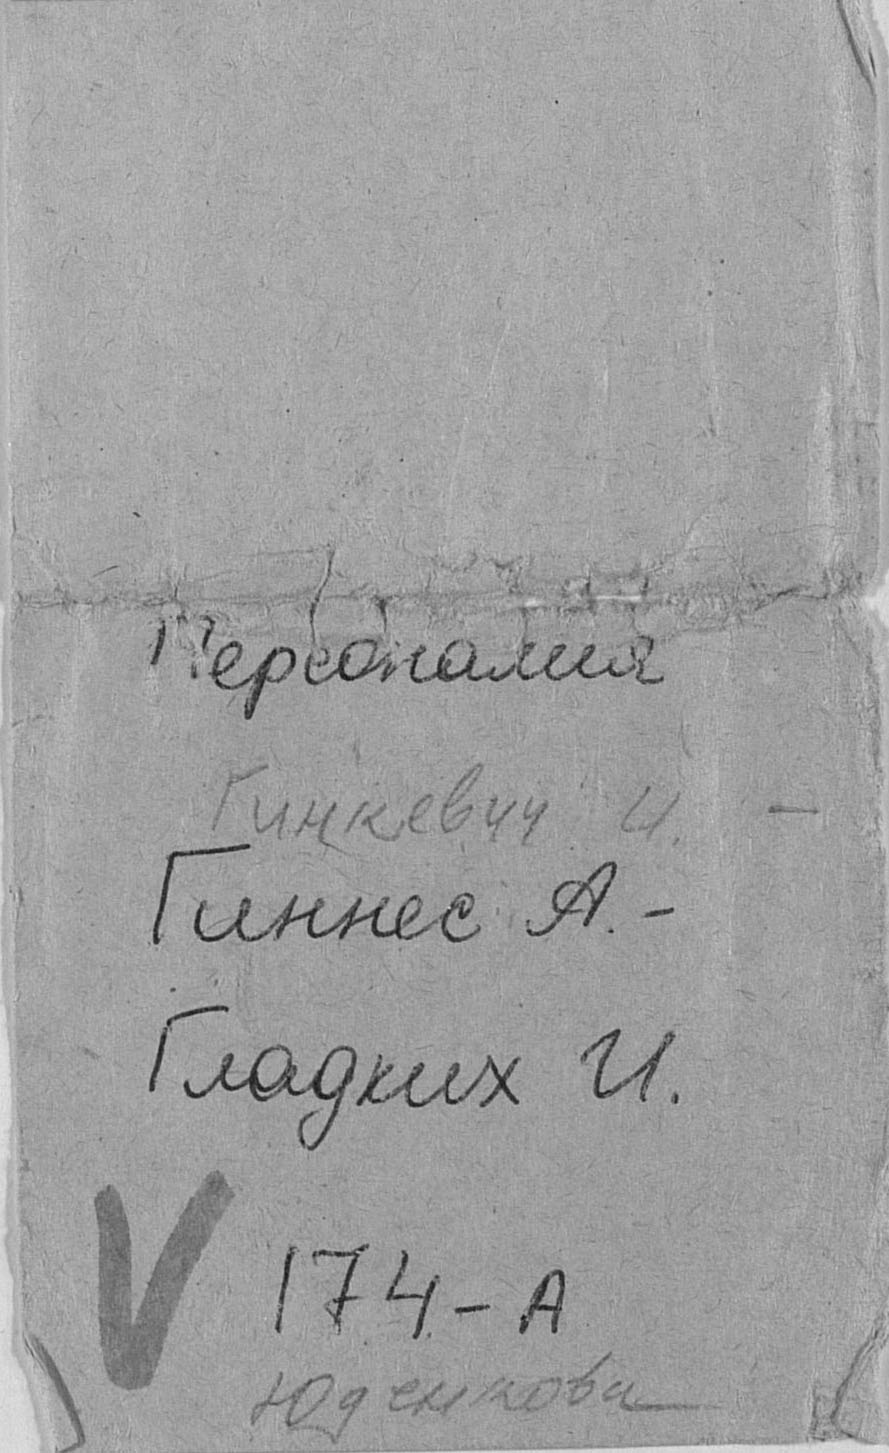 Персоналия
Гинкевич И. –
Гиннес А. –
Гладких И.
V 174-А
Юденкова